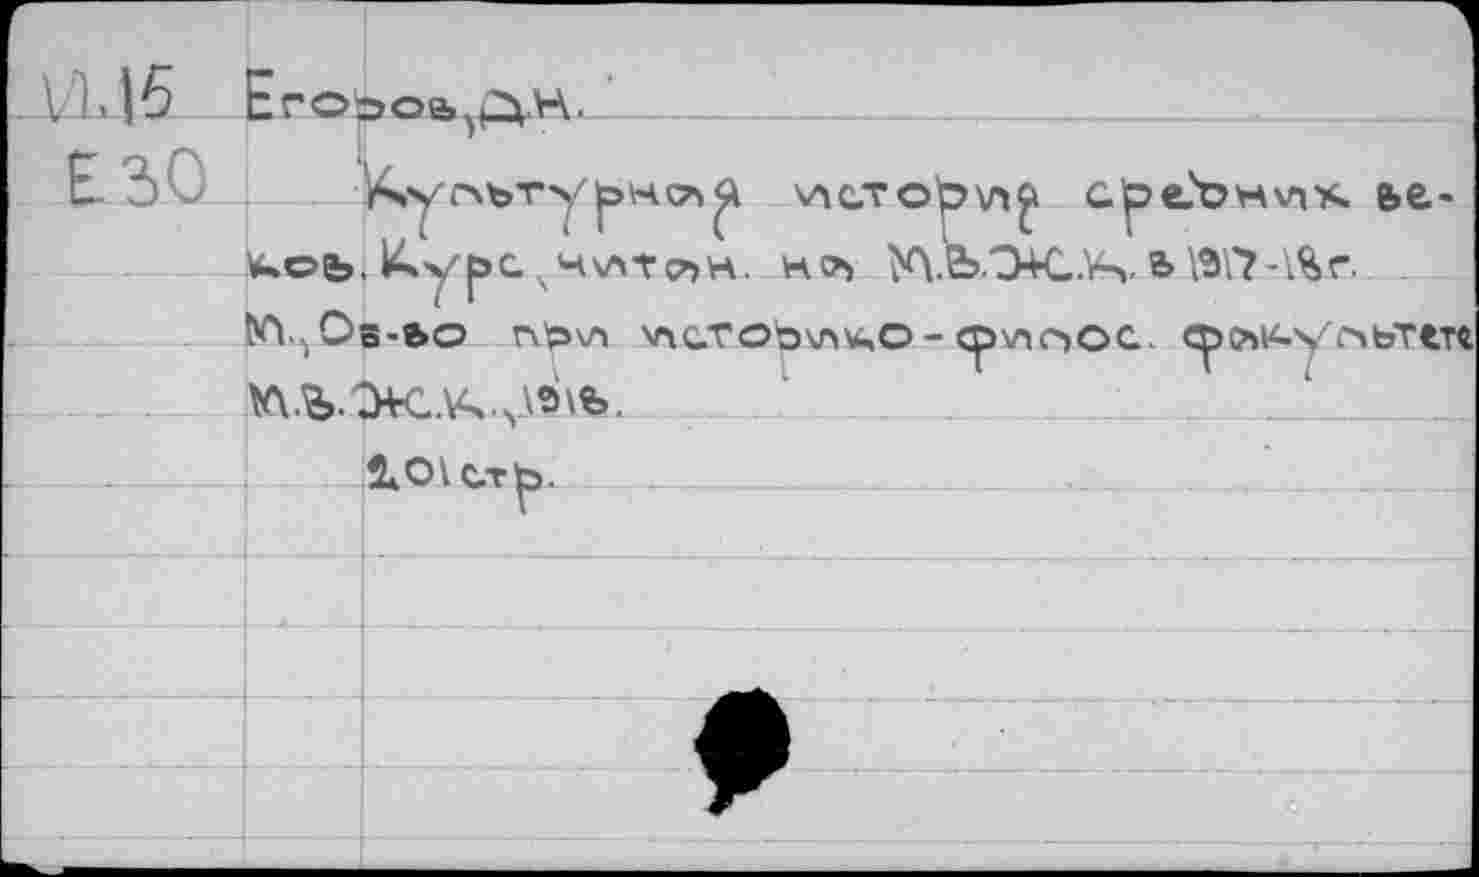 И.15 Егоров, Д.Н.
Е30 Культурная история средних ве-
ков. Курс, читан. на М.В.Ж.К. в 1917-18г.
М., О-во при историко-филос. факультете
М.В.Ж.К., 1918.
201 стр.